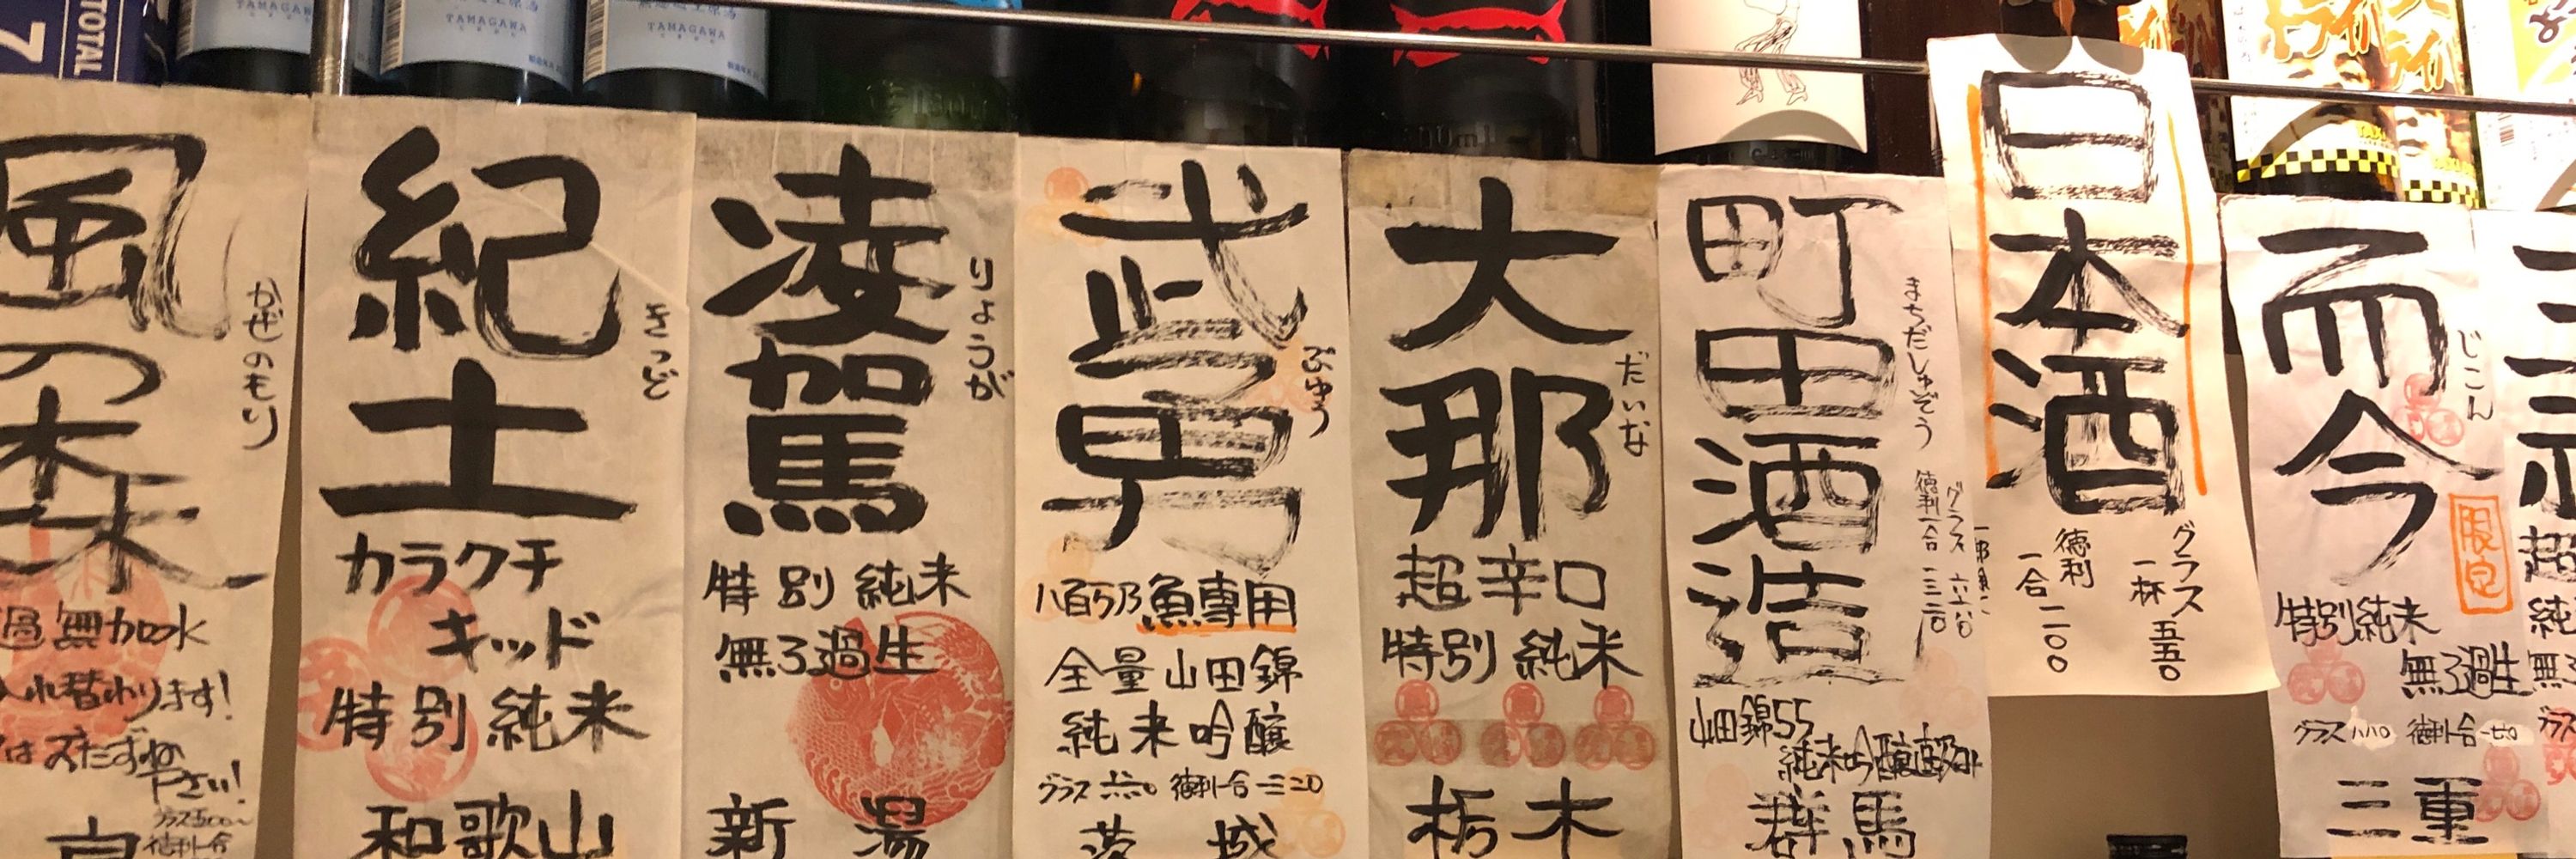 TOTAL
7
TAMAGAWA
TAMAGAWA
TAMAGAWA
風の森
かぜのもり
過無加水
入れ替わります!
はおたずね
下さい!
紀土
きっど
カラクチ
キッド
特別純米
和歌山
凌駕
りょうが
特別純米
無ろ過生
新潟
武勇
ぶゆう
八百乃魚専用
全量山田錦
純米吟醸
グラス 六六〇 徳利一合 一三二〇
茨城
大那
だいな
超辛口
特別純米
栃木
町田酒造
まちだしゅぞう
グラス 六六〇
徳利一合 一三二〇
山田錦55
純米吟醸直汲み
群馬
日本酒
グラス
一杯 五五〇
徳利
一合 一一〇〇
而今
じこん
限定
特別純米
無ろ過生
三重
超
純
無ろ
グラス